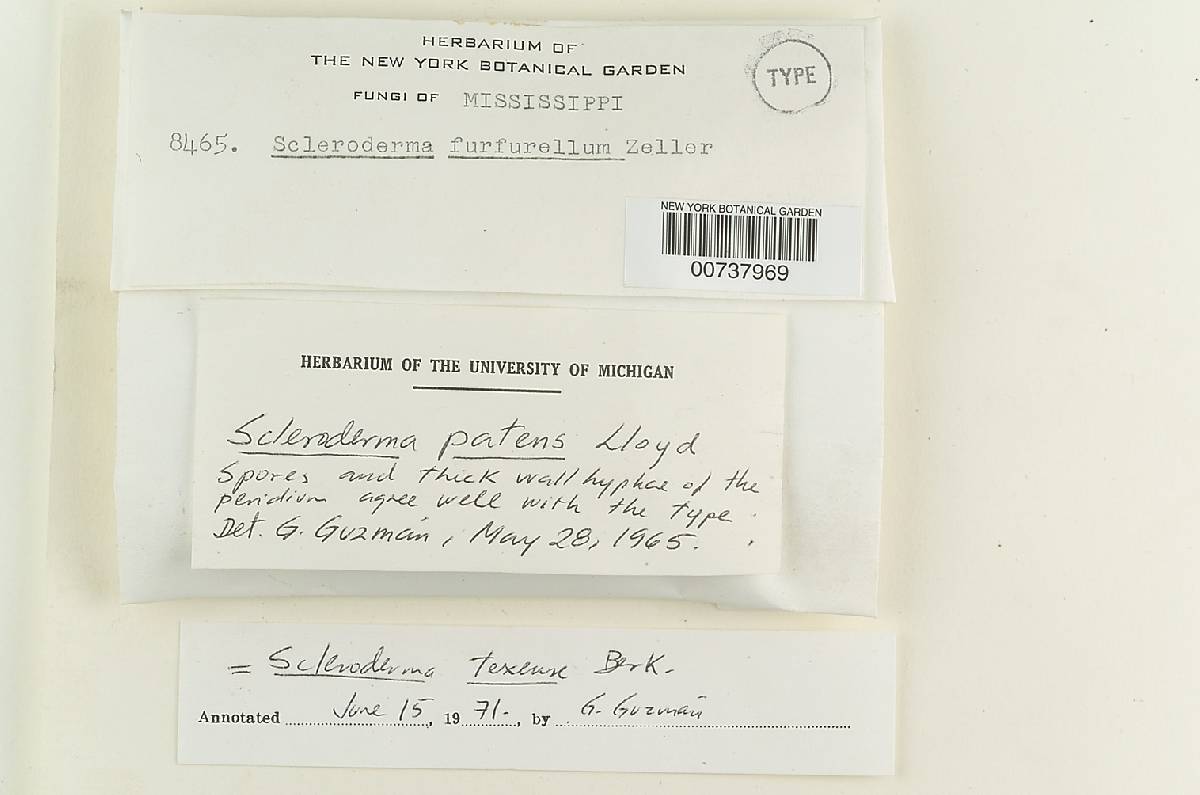 HERBARIUM OF
THE NEW YORK BOTANICAL GARDEN
TYPE
FUNGI OF MISSISSIPPI
8465. Scleroderma furfurellum Zeller
NEW YORK BOTANICAL GARDEN
00737969
HERBARIUM OF THE UNIVERSITY OF MICHIGAN
Scleroderma patens Lloyd
Spores and thick wall hyphae of the
peridium agree well with the type.
Det. G. Guzmán, May 28, 1965.
= Scleroderma texense Berk.
Annotated June 15, 1971., by G. Guzmán